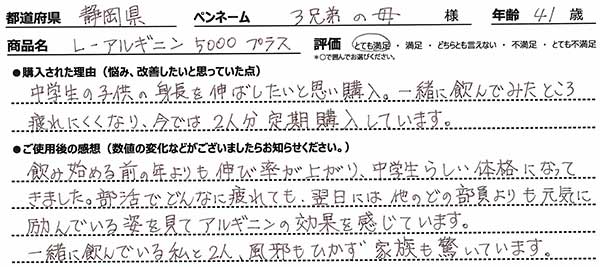 都道府県 静岡県 ペンネーム 3兄弟の母 様 年齢 41 歳
商品名 L-アルギニン5000プラス 評価 とても満足・満足・どちらとも言えない・不満足・とても不満足
*○で囲んでお選びください。
●購入された理由（悩み、改善したいと思っていた点）
中学生の子供の身長を伸ばしたいと思い購入。一緒に飲んでみたところ
疲れにくくなり、今では2人分定期購入しています。
●ご使用後の感想（数値の変化などがございましたらお知らせください。）
飲み始める前の年よりも伸び率が上がり、中学生らしい体格になって
きました。部活でどんなに疲れても、翌日には他のどの部員よりも元気に
励んでいる姿を見てアルギニンの効果を感じています。
一緒に飲んでいる私と2人、風邪もひかず家族も驚いています。